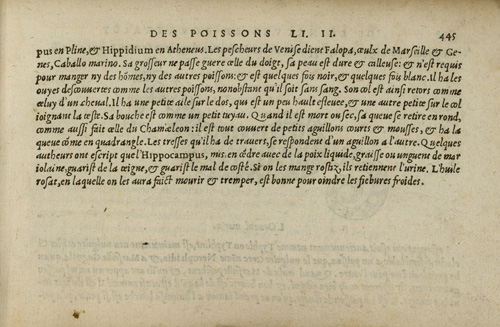 DES POISSONS LI. II. 445
pus en Pline, & Hippidium en Atheneus. Les pescheurs de Venise dient Falopa, ceulx de Marseille & Ge-
nes, Caballo marino. Sa grosseur ne passe guere celle du doigt, sa peau est dure & calleuse: & n'est requis
pour manger ny des hõmes, ny des autres poissons: & est quelques fois noir, & quelques fois blanc. Il ha les
ouyes descouuertes comme les autres poissons, nonobstant qu'il soit sans sang. Son col est ainsi retors comme
celuy d'un cheual. Il ha une petite aile sur le dos, qui est un peu hault esleuee, & une autre petite sur le col
ioignant la teste. Sa bouche est comme un petit tuyau. Quand il est mort ou sec, sa queue se retire en rond,
comme aussi fait celle du Chamæleon: il est tout couuert de petits aguillons courts & mousses, & ha la
queue cõme en quadrangle. Les tresses qu'il ha de trauers, se respondent d'un aguillon a l'autre. Quelques
autheurs ont escript que l'Hippocampus, mis en cẽdre auec de la poix liquide, graisse ou unguent de mar
iolaine, guarist de la teigne, & guarist le mal de costé. Si on les mange rostiz, ils retiennent l'urine. L'huile
rosat, en laquelle on les aura faict mourir & tremper, est bonne pour oindre les fiebures froides.